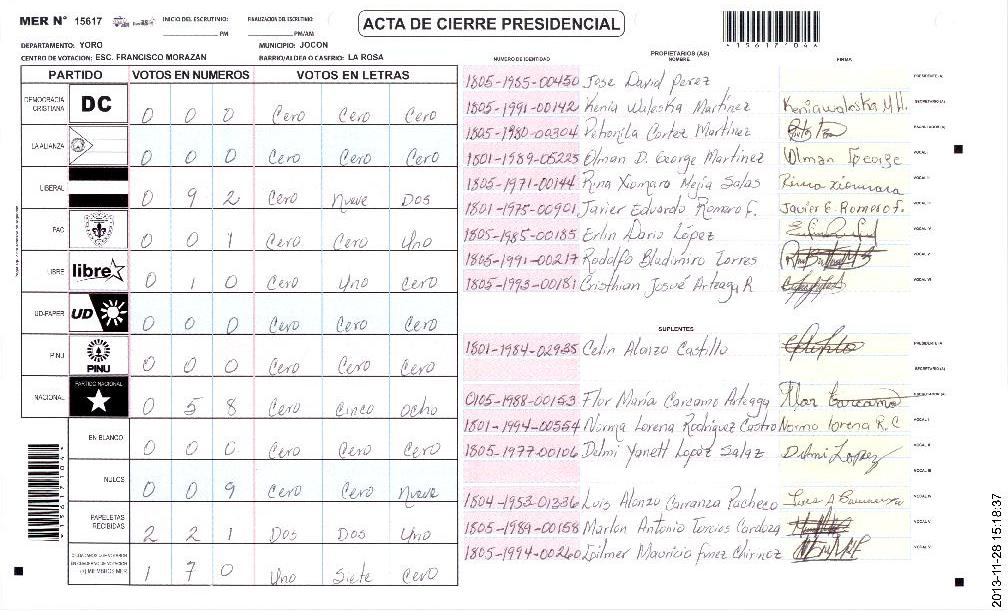 MER N° 15617
INICIO DEL ESCRUTINIO:
PM
FINALIZACION DEL ESCRUTINIO:
PM/AM
ACTA DE CIERRE PRESIDENCIAL
1561704
DEPARTAMENTO: YORO
MUNICIPIO: JOCON
CENTRO DE VOTACION: ESC. FRANCISCO MORAZAN
BARRIO/ALDEA O CASERIO: LA ROSA
PARTIDO VOTOS EN NUMEROS VOTOS EN LETRAS
DEMOCRACIA CRISTIANA DC 0 0 0 Cero Cero Cero
LA ALIANZA 0 0 0 Cero Cero Cero
LIBERAL 0 9 2 Cero Nueve Dos
PAC 0 0 1 Cero Cero Uno
LIBRE libre 0 1 0 Cero Uno Cero
UD-FAPER UD 0 0 0 Cero Cero Cero
PINU PINU 0 0 0 Cero Cero Cero
NACIONAL PARTIDO NACIONAL 0 5 8 Cero Cinco Ocho
EN BLANCO 0 0 0 Cero Cero Cero
NULOS 0 0 9 Cero Cero Nueve
PAPELETAS RECIBIDAS 2 2 1 Dos Dos Uno
1 7 0 Uno Siete Cero
1561704
NUMERO DE IDENTIDAD
PROPIETARIOS (AS)
NOMBRE
FIRMA
1805-1985-00450 Jose David Perez PRESIDENTE (A)
1805-1991-00142 Kenia Waleska Martinez Keniawaleska M.H. SECRETARIO (A)
1805-1980-00304 Petronila Cortez Martinez ESCRUTADOR (A)
1801-1989-05225 Olman D. George Martinez Olman George VOCAL I
1805-1971-00144 Rina Xiomara Mejia Salas Rinna xiomara VOCAL II
1801-1975-00901 Javier Eduardo Romero F. Javier E. Romero F. VOCAL III
1805-1985-00185 Erlin Dario López VOCAL IV
1805-1991-00217 Rodolfo Bladimiro Torres VOCAL V
1805-1993-00181 Cristhian Josué Arteaga R VOCAL VI
SUPLENTES
1801-1984-02935 Celin Alonzo Castillo PRESIDENTE (A)
SECRETARIO (A)
0105-1988-00153 Flor María Carcamo Arteaga Flor Carcamo ESCRUTADOR (A)
1801-1994-00554 Norma Lorena Rodriguez Castro Norma lorena R. C VOCAL I
1805-1977-00106 Delmi Yanett Lopez Salaz Delmi Lopez VOCAL II
VOCAL III
1804-1953-01336 Luis Alonzo Carranza Pacheco VOCAL IV
1805-1989-00158 Marlon Antonio Torcios Cardoza VOCAL V
1805-1994-00260 Funez VOCAL VI
2013-11-28 15:18:37